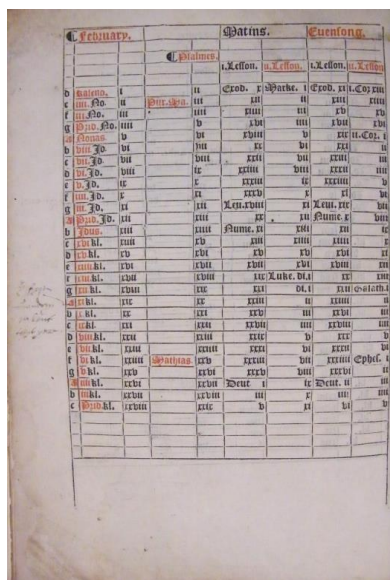 ¶ February. Matins. Euensong.
¶ Psalmes.
i.Lesson. ii.Lesson. i.Lesson. ii.Lesson.
d kalend. i ii Exod. x Marke. i Exod. xi i.Cor xiii
e iiii.No. ii Pur. Ma. iii xii ii xiii xiiii
f iii.No. iii iiii xiiii iii xv xv
g Prid.No. iiii v xvi iiii xvii xvi
A Nonas v vi xviii v xix ii.Cor. i
b viii.Id. vi vii xx vi xxi ii
c vii.Id. vii viii xxii vii xxiii iii
d vi.Id. viii ix xxiiii viii xxxii iiii
e v.Id. ix x xxxiii ix xxxiiii v
f iiii.Id. x xi xxxv x xl vi
g iii.Id. xi xii Leui.xviii xi Leui. xix vii
A Prid.Id. xii xiii xx xii Nume. x viii
b Idus. xiii xiiii Nume. xi xiii xii ix
c xvi kl. xiiii xv xiii xiiii xiiii x
d xv kl. xv xvi xv xv xvi xi
e xiiii kl. xvi xvii xvii xvi xviii xii
f xiii kl. xvii xviii xix Luke. di.i xx xiii
g xii kl. xviii xix xxi di.i xxii Galath.i
A xi kl. xix xx xxiii ii xxiiii ii
b x kl. xx xxi xxv iii xxvi iii
c ix kl. xxi xxii xxvii iiii xxviii iiii
d viii kl. xxii xxiii xxix v xxx v
e vii kl. xxiii xxiiii xxxi vi xxxii vi
f vi kl. xxiiii Mathias. xxv xxxiii vii xxxiiii Ephes. i
g v kl. xxv xxvi xxxv viii xxxvi ii
A iiii kl. xxvi xxvii Deut i ix Deut. ii iii
b iii kl. xxvii xxviii iii x iiii iiii
c Prid.kl. xxviii xxix v xi vi v